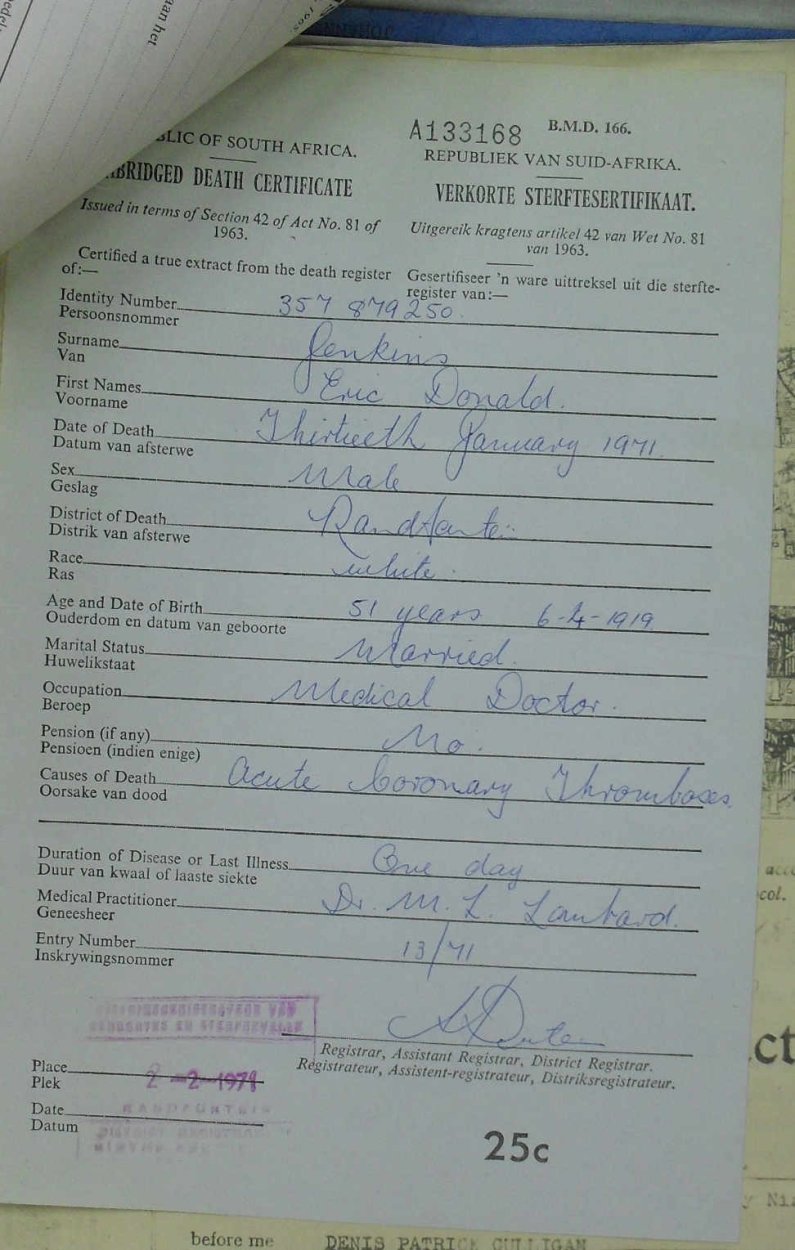 aan het
A133168 B.M.D. 166.
BLIC OF SOUTH AFRICA.
REPUBLIEK VAN SUID-AFRIKA.
BRIDGED DEATH CERTIFICATE
VERKORTE STERFTESERTIFIKAAT.
Issued in terms of Section 42 of Act No. 81 of
1963.
Uitgereik kragtens artikel 42 van Wet No. 81
van 1963.
Certified a true extract from the death register
of:—
Gesertifiseer 'n ware uittreksel uit die sterfte-
register van:—
Identity Number 357 879 250
Persoonsnommer
Surname Jenkins
Van
First Names Eric Donald.
Voorname
Date of Death Thirtieth January 1971.
Datum van afsterwe
Sex Male
Geslag
District of Death
Distrik van afsterwe
Race White.
Ras
Age and Date of Birth 51 years 6-4-1919
Ouderdom en datum van geboorte
Marital Status Married.
Huwelikstaat
Occupation Medical Doctor.
Beroep
Pension (if any) No.
Pensioen (indien enige)
Causes of Death Acute Coronary Thromboses.
Oorsake van dood
Duration of Disease or Last Illness One day
Duur van kwaal of laaste siekte
Medical Practitioner Dr. M. L. Lombard.
Geneesheer
Entry Number 13/71
Inskrywingsnommer
Registrar, Assistant Registrar, District Registrar.
Registrateur, Assistent-registrateur, Distriksregistrateur.
Place 2-2-1971
Plek
Date
Datum
25c
before me DENIS PATRICK CULLIGAN